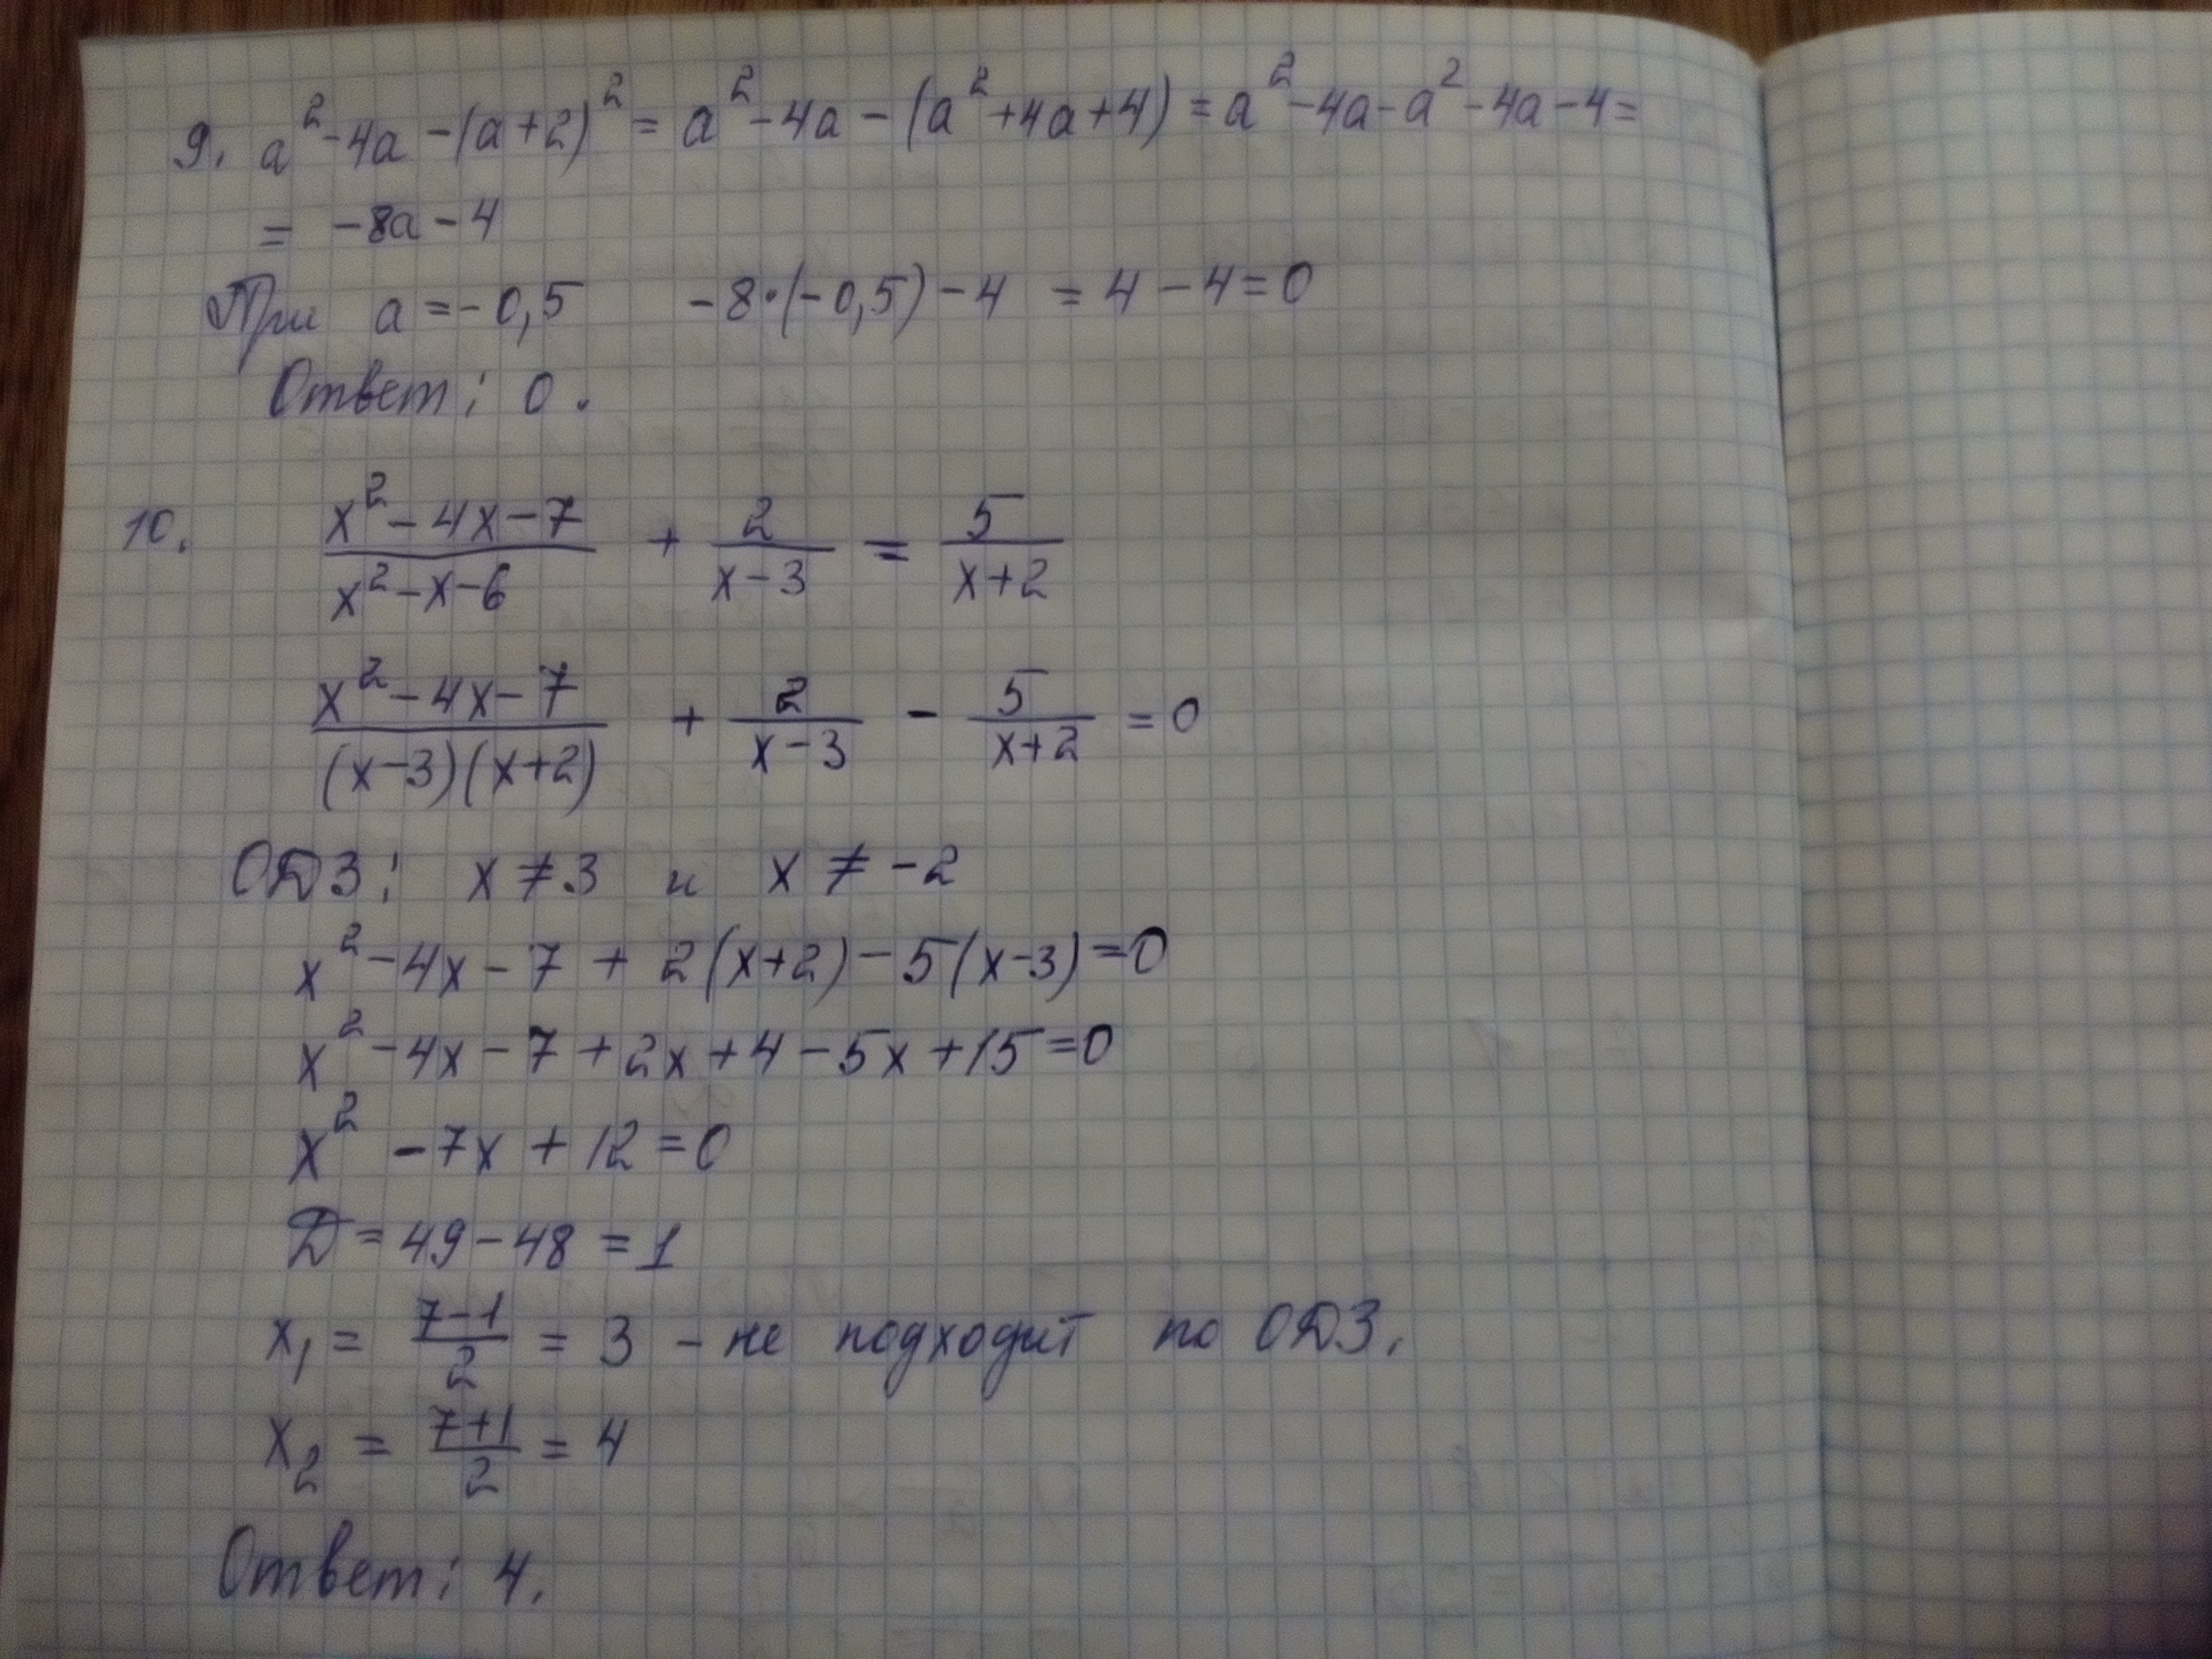 9. a² - 4a - (a+2)² = a² - 4a - (a² + 4a + 4) = a² - 4a - a² - 4a - 4 =
= -8a - 4
При a = -0,5 -8·(-0,5) - 4 = 4 - 4 = 0
Ответ: 0.
10. (x² - 4x - 7)/(x² - x - 6) + 2/(x - 3) = 5/(x + 2)
(x² - 4x - 7)/((x - 3)(x + 2)) + 2/(x - 3) - 5/(x + 2) = 0
ОДЗ: x ≠ 3 и x ≠ -2
x² - 4x - 7 + 2(x+2) - 5(x-3) = 0
x² - 4x - 7 + 2x + 4 - 5x + 15 = 0
x² - 7x + 12 = 0
Д = 49 - 48 = 1
x₁ = (7-1)/2 = 3 - не подходит по ОДЗ.
x₂ = (7+1)/2 = 4
Ответ: 4.